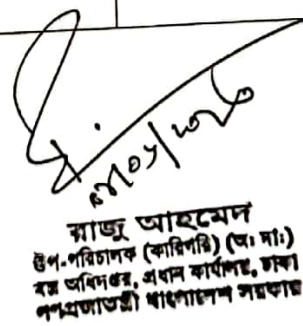 রাজু আহমেদ
উপ-পরিচালক (কারিগরি) (অঃ দাঃ)
বস্ত্র অধিদপ্তর, প্রধান কার্যালয়, ঢাকা
গণপ্রজাতন্ত্রী বাংলাদেশ সরকার